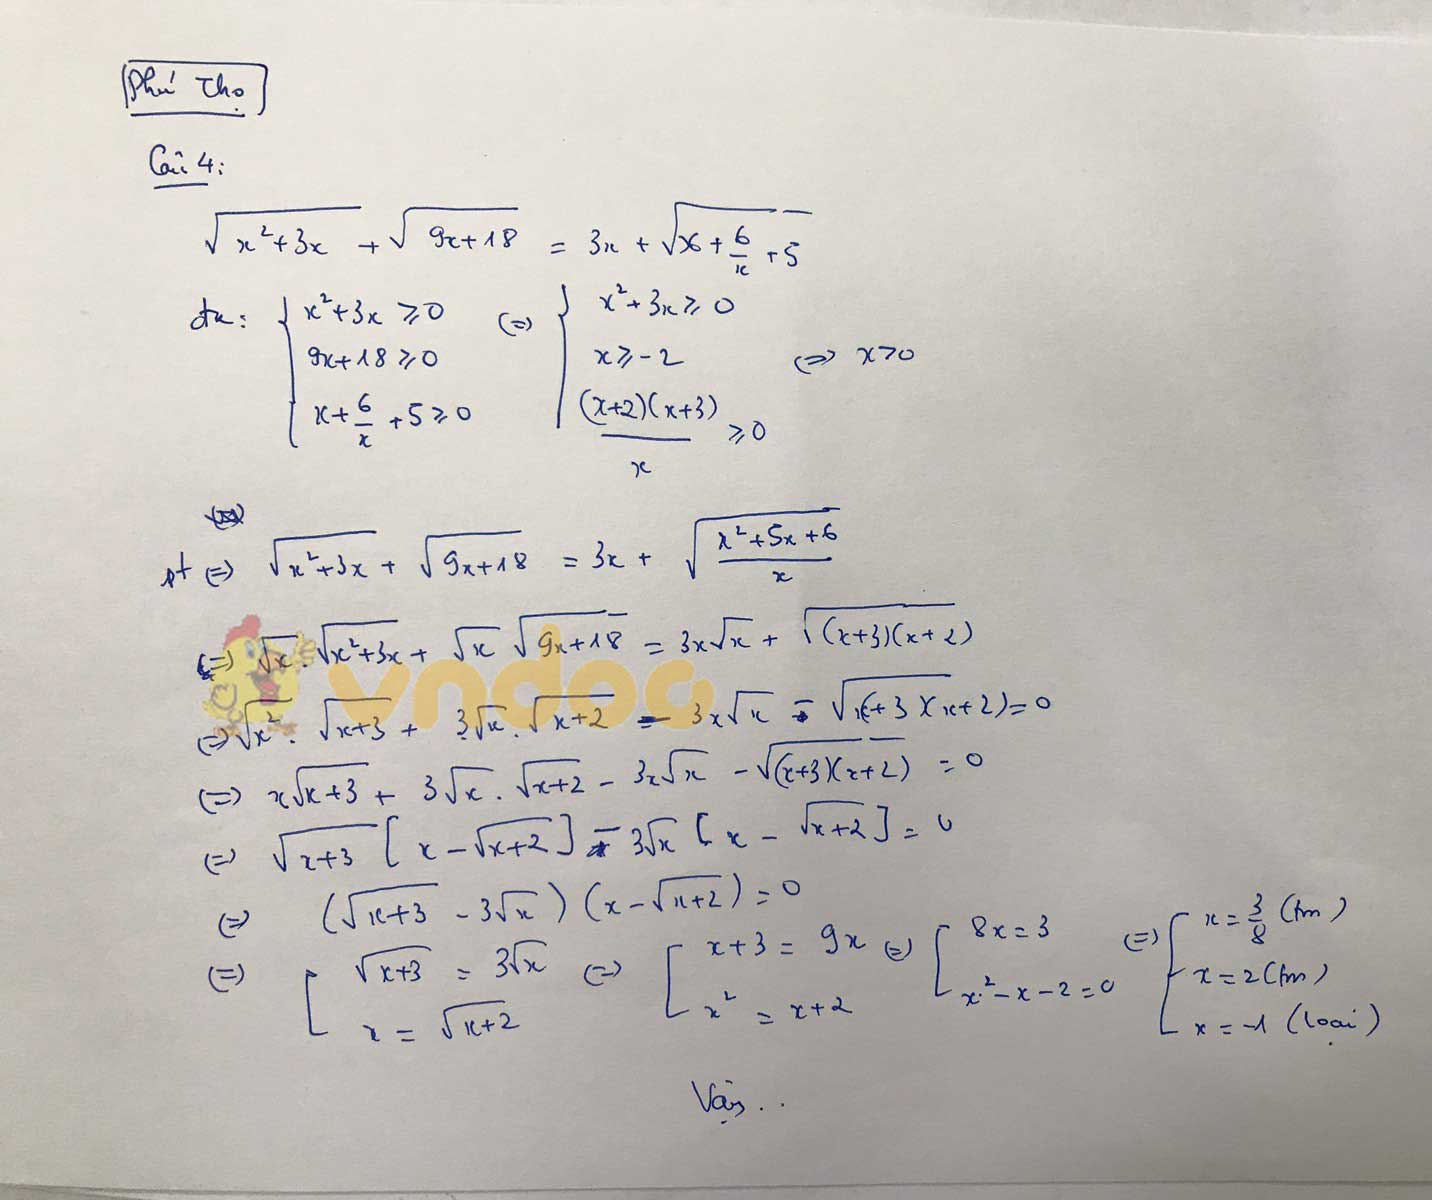 Phú Thọ
Câu 4:
√(x²+3x) + √(9x+18) = 3x + √(x + 6/x + 5)
đk: { x²+3x ⩾ 0 (=) { x²+3x ⩾ 0
9x+18 ⩾ 0 x ⩾ -2 (=) x > 0
x + 6/x + 5 ⩾ 0 (x+2)(x+3)/x ⩾ 0
pt (=) √(x²+3x) + √(9x+18) = 3x + √((x²+5x+6)/x)
(=) √x . √(x²+3x) + √x √(9x+18) = 3x√x + √((x+3)(x+2))
vndoc
(=) √x² . √(x+3) + 3√x . √(x+2) - 3x√x - √((x+3)(x+2)) = 0
(=) x√(x+3) + 3√x . √(x+2) - 3x√x - √((x+3)(x+2)) = 0
(=) √(x+3) [x - √(x+2)] - 3√x [x - √(x+2)] = 0
(=) (√(x+3) - 3√x) (x - √(x+2)) = 0
(=) [ √(x+3) = 3√x (=) [ x+3 = 9x (=) [ 8x = 3 (=) [ x = 3/8 (tm)
x = √(x+2) x² = x+2 x² - x - 2 = 0 x = 2 (tm)
x = -1 (loại)
Vậy ..